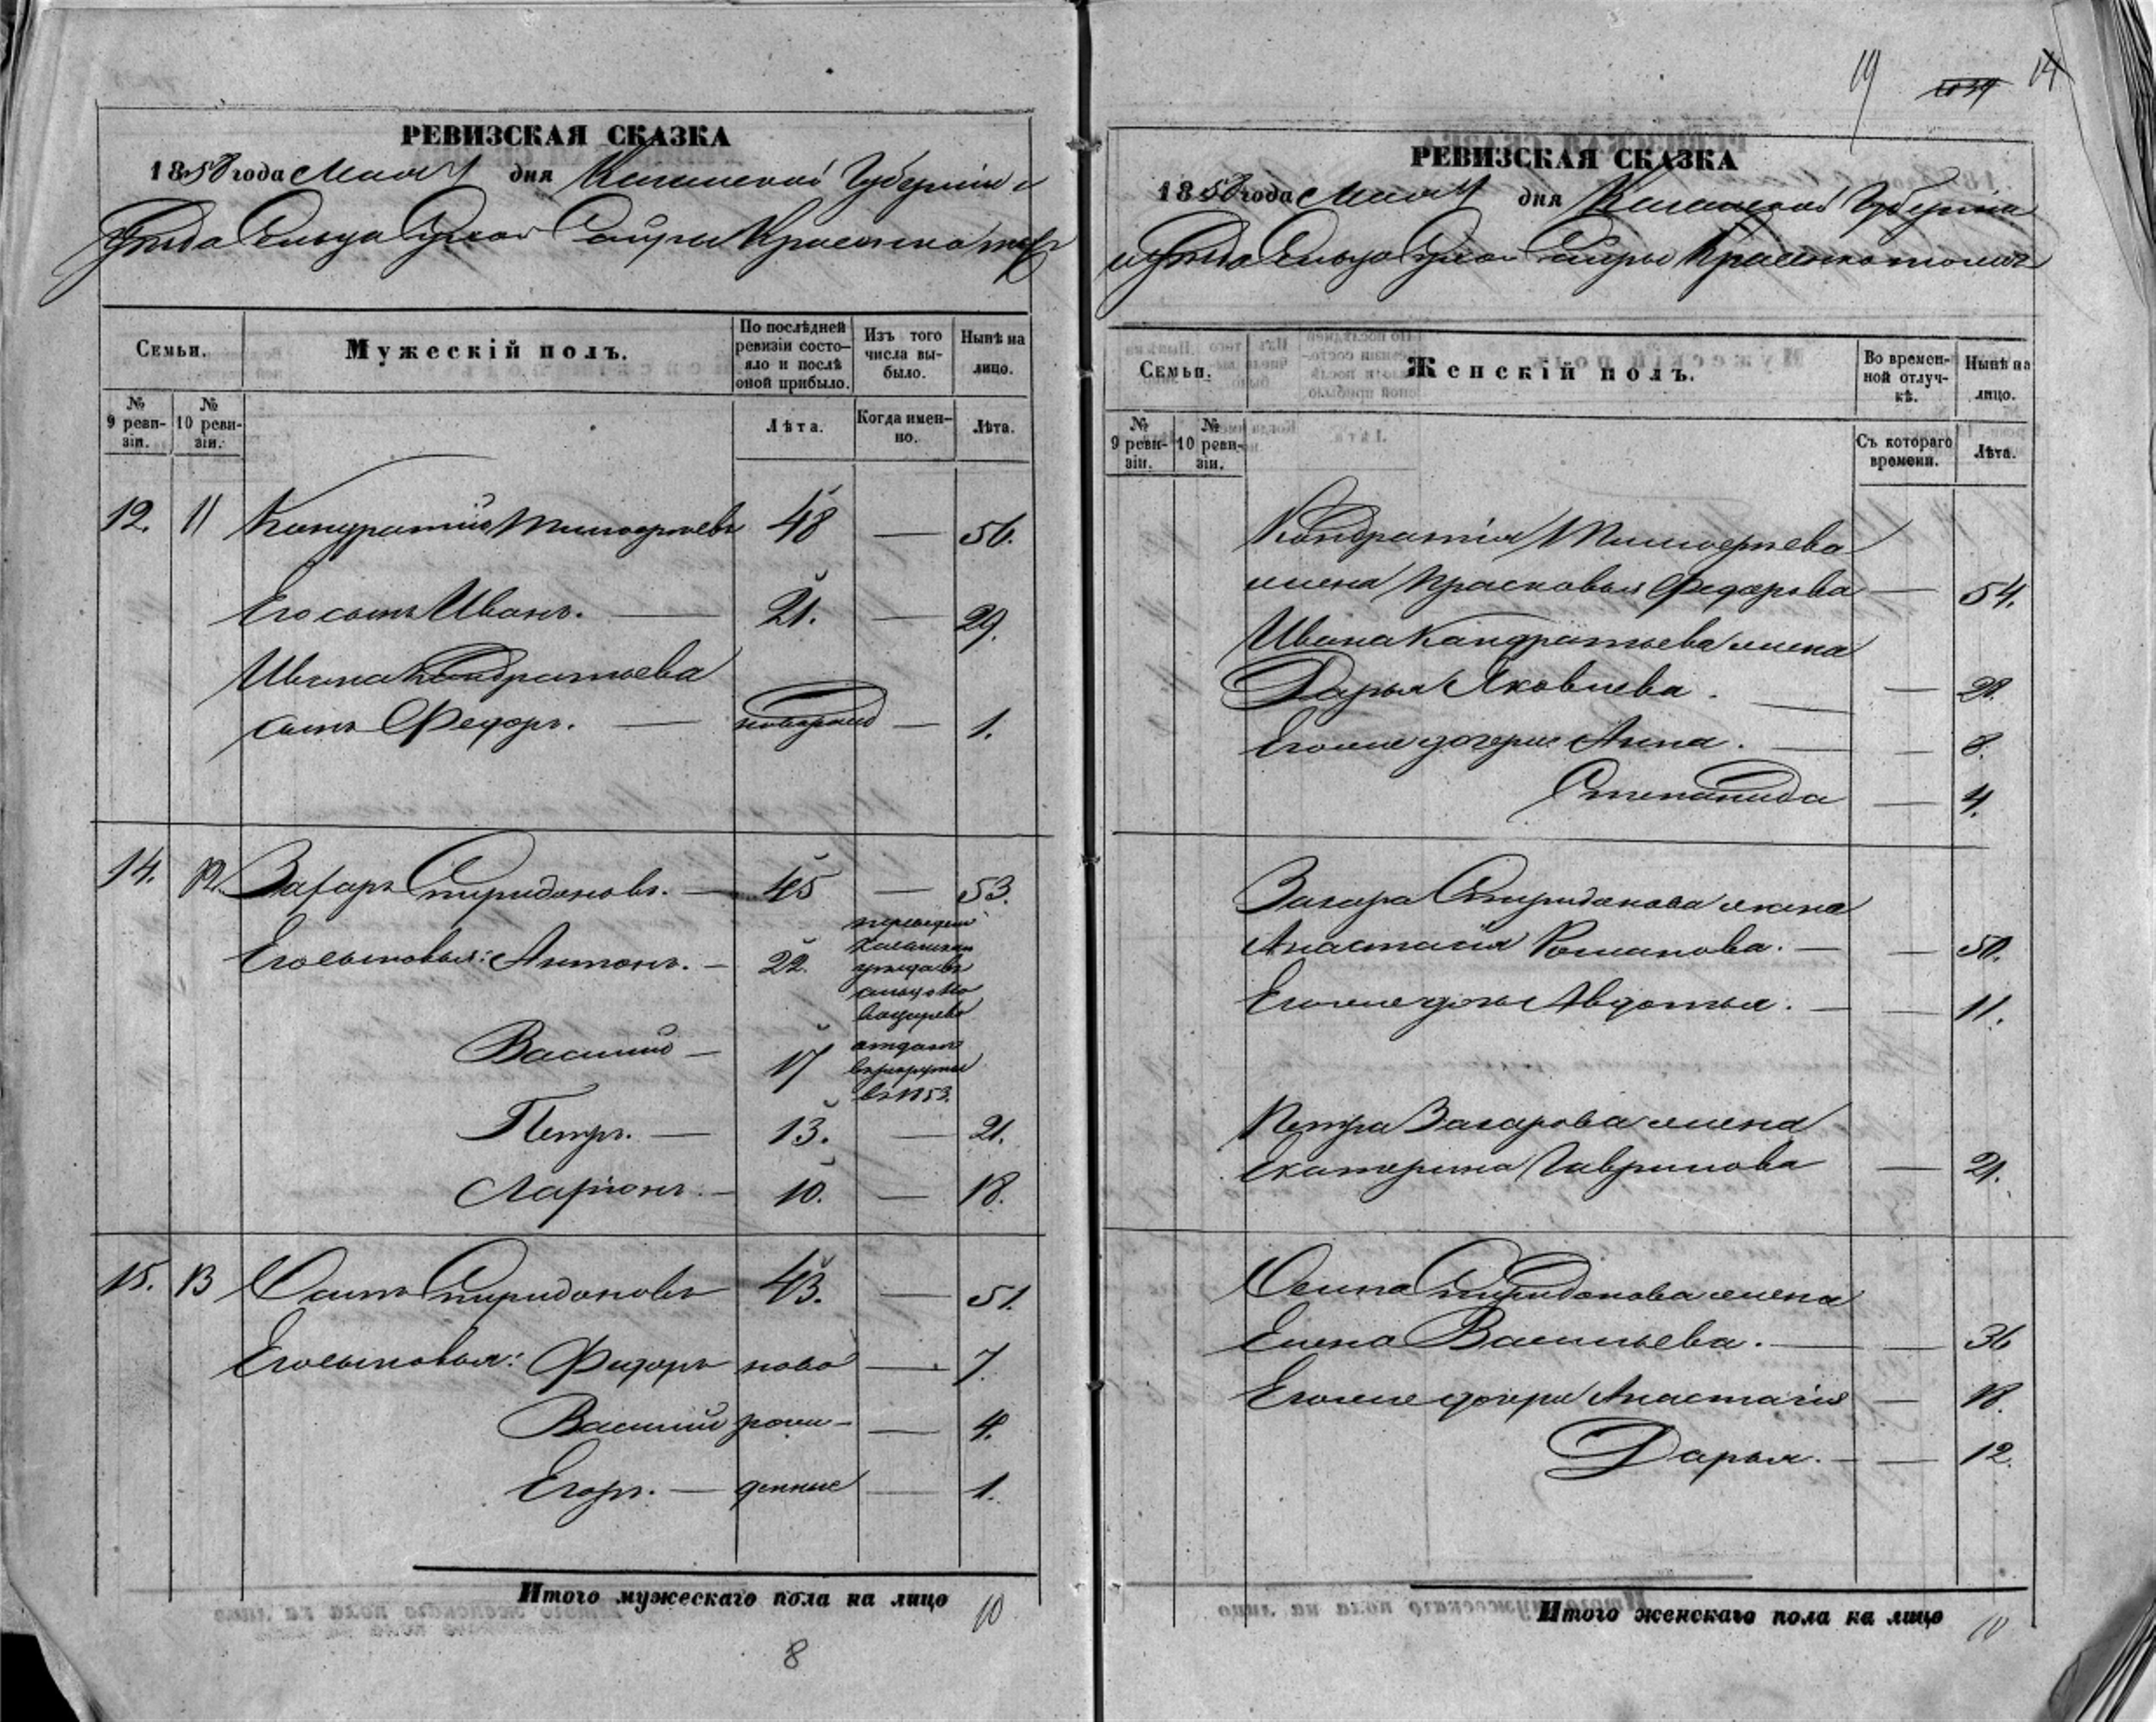 РЕВИЗСКАЯ СКАЗКА
1858 года Мая 1 дня Казанской Губерніи и
уѣзда Сельца
Семьи.
Мужескій полъ.
По послѣдней ревизіи состо-яло и послѣ оной прибыло.
Изъ того числа вы-было.
Нынѣ на лицо.
№ 9 реви-зіи.
№ 10 реви-зіи.
Лѣта.
Когда имен-но.
Лѣта.
12. 11 Кондратій Тимофѣевъ 48 — 56.
Его сынъ Иванъ. — 21. — 29.
Ивана Кондратьева
сынъ Федоръ. — новорожд — 1.
14. 12. Захаръ Спиридоновъ. — 45 — 53.
Его сыновья: Антонъ. — 22.
переведен
Казанскаго
уѣзда въ
сельцо
Василий — 17
отданъ
в рекруты
въ 1853.
Петръ. — 13. — 21.
Ларіонъ. — 10. — 18.
15. 13 Осипъ Спиридоновъ 43. — 51.
Его сыновья: Федоръ ново — 7.
Василий рож- — 4.
Егоръ. — денные — 1.
Итого мужескаго пола на лицо 10
8
19 14
РЕВИЗСКАЯ СКАЗКА
1858 года Мая 1 дня Казанской Губерніи
и уѣзда Сельца
Семьи.
Женскій полъ.
Во времен-ной отлуч-кѣ.
Нынѣ на лицо.
№ 9 реви-зіи.
№ 10 реви-зіи.
Съ котораго времени.
Лѣта.
Кондратія Тимофѣева
жена Прасковья Федорова — 54.
Ивана Кандратьева жена
Дарья Яковлева. — 28.
Его же дочери Анна. — 8.
Степанида — 4.
Захара Спиридонова жена
Анастасія Романова. — 50.
Его же дочь Авдотья. — 11.
Петра Захарова жена
Екатерина Гаврилова — 21.
Осипа Спиридонова жена
Елена Васильева. — 36
Его же дочери Анастасія — 18.
Дарья. — 12.
Итого женскаго пола на лицо 10